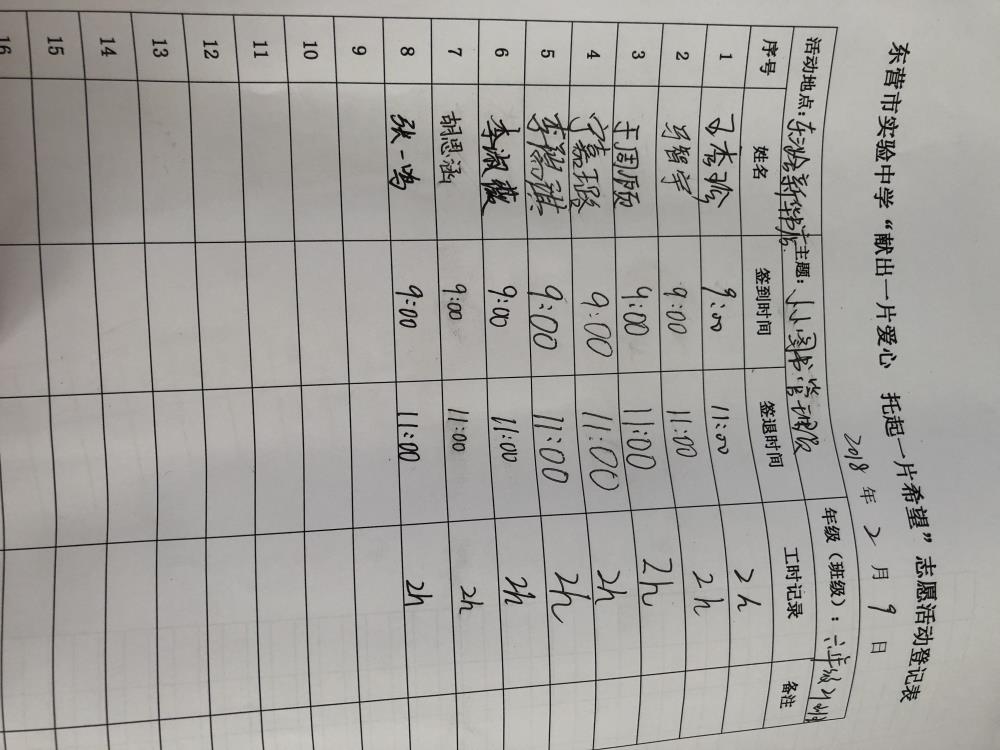 东营市实验中学“献出一片爱心 托起一片希望”志愿活动登记表
2018年2月9日
活动地点：东 新华书店 主题：小小图书管理员 年级（班级）：六年级2班
序号 姓名 签到时间 签退时间 工时记录 备注
1 9:00 11:00 2h
2 马智宇 9:00 11:00 2h
3 王周颀 9:00 11:00 2h
4 宁嘉瑕 9:00 11:00 2h
5 李 琪 9:00 11:00 2h
6 李淑薇 9:00 11:00 2h
7 胡思涵 9:00 11:00 2h
8 张一鸣 9:00 11:00 2h
9
10
11
12
13
14
15
16